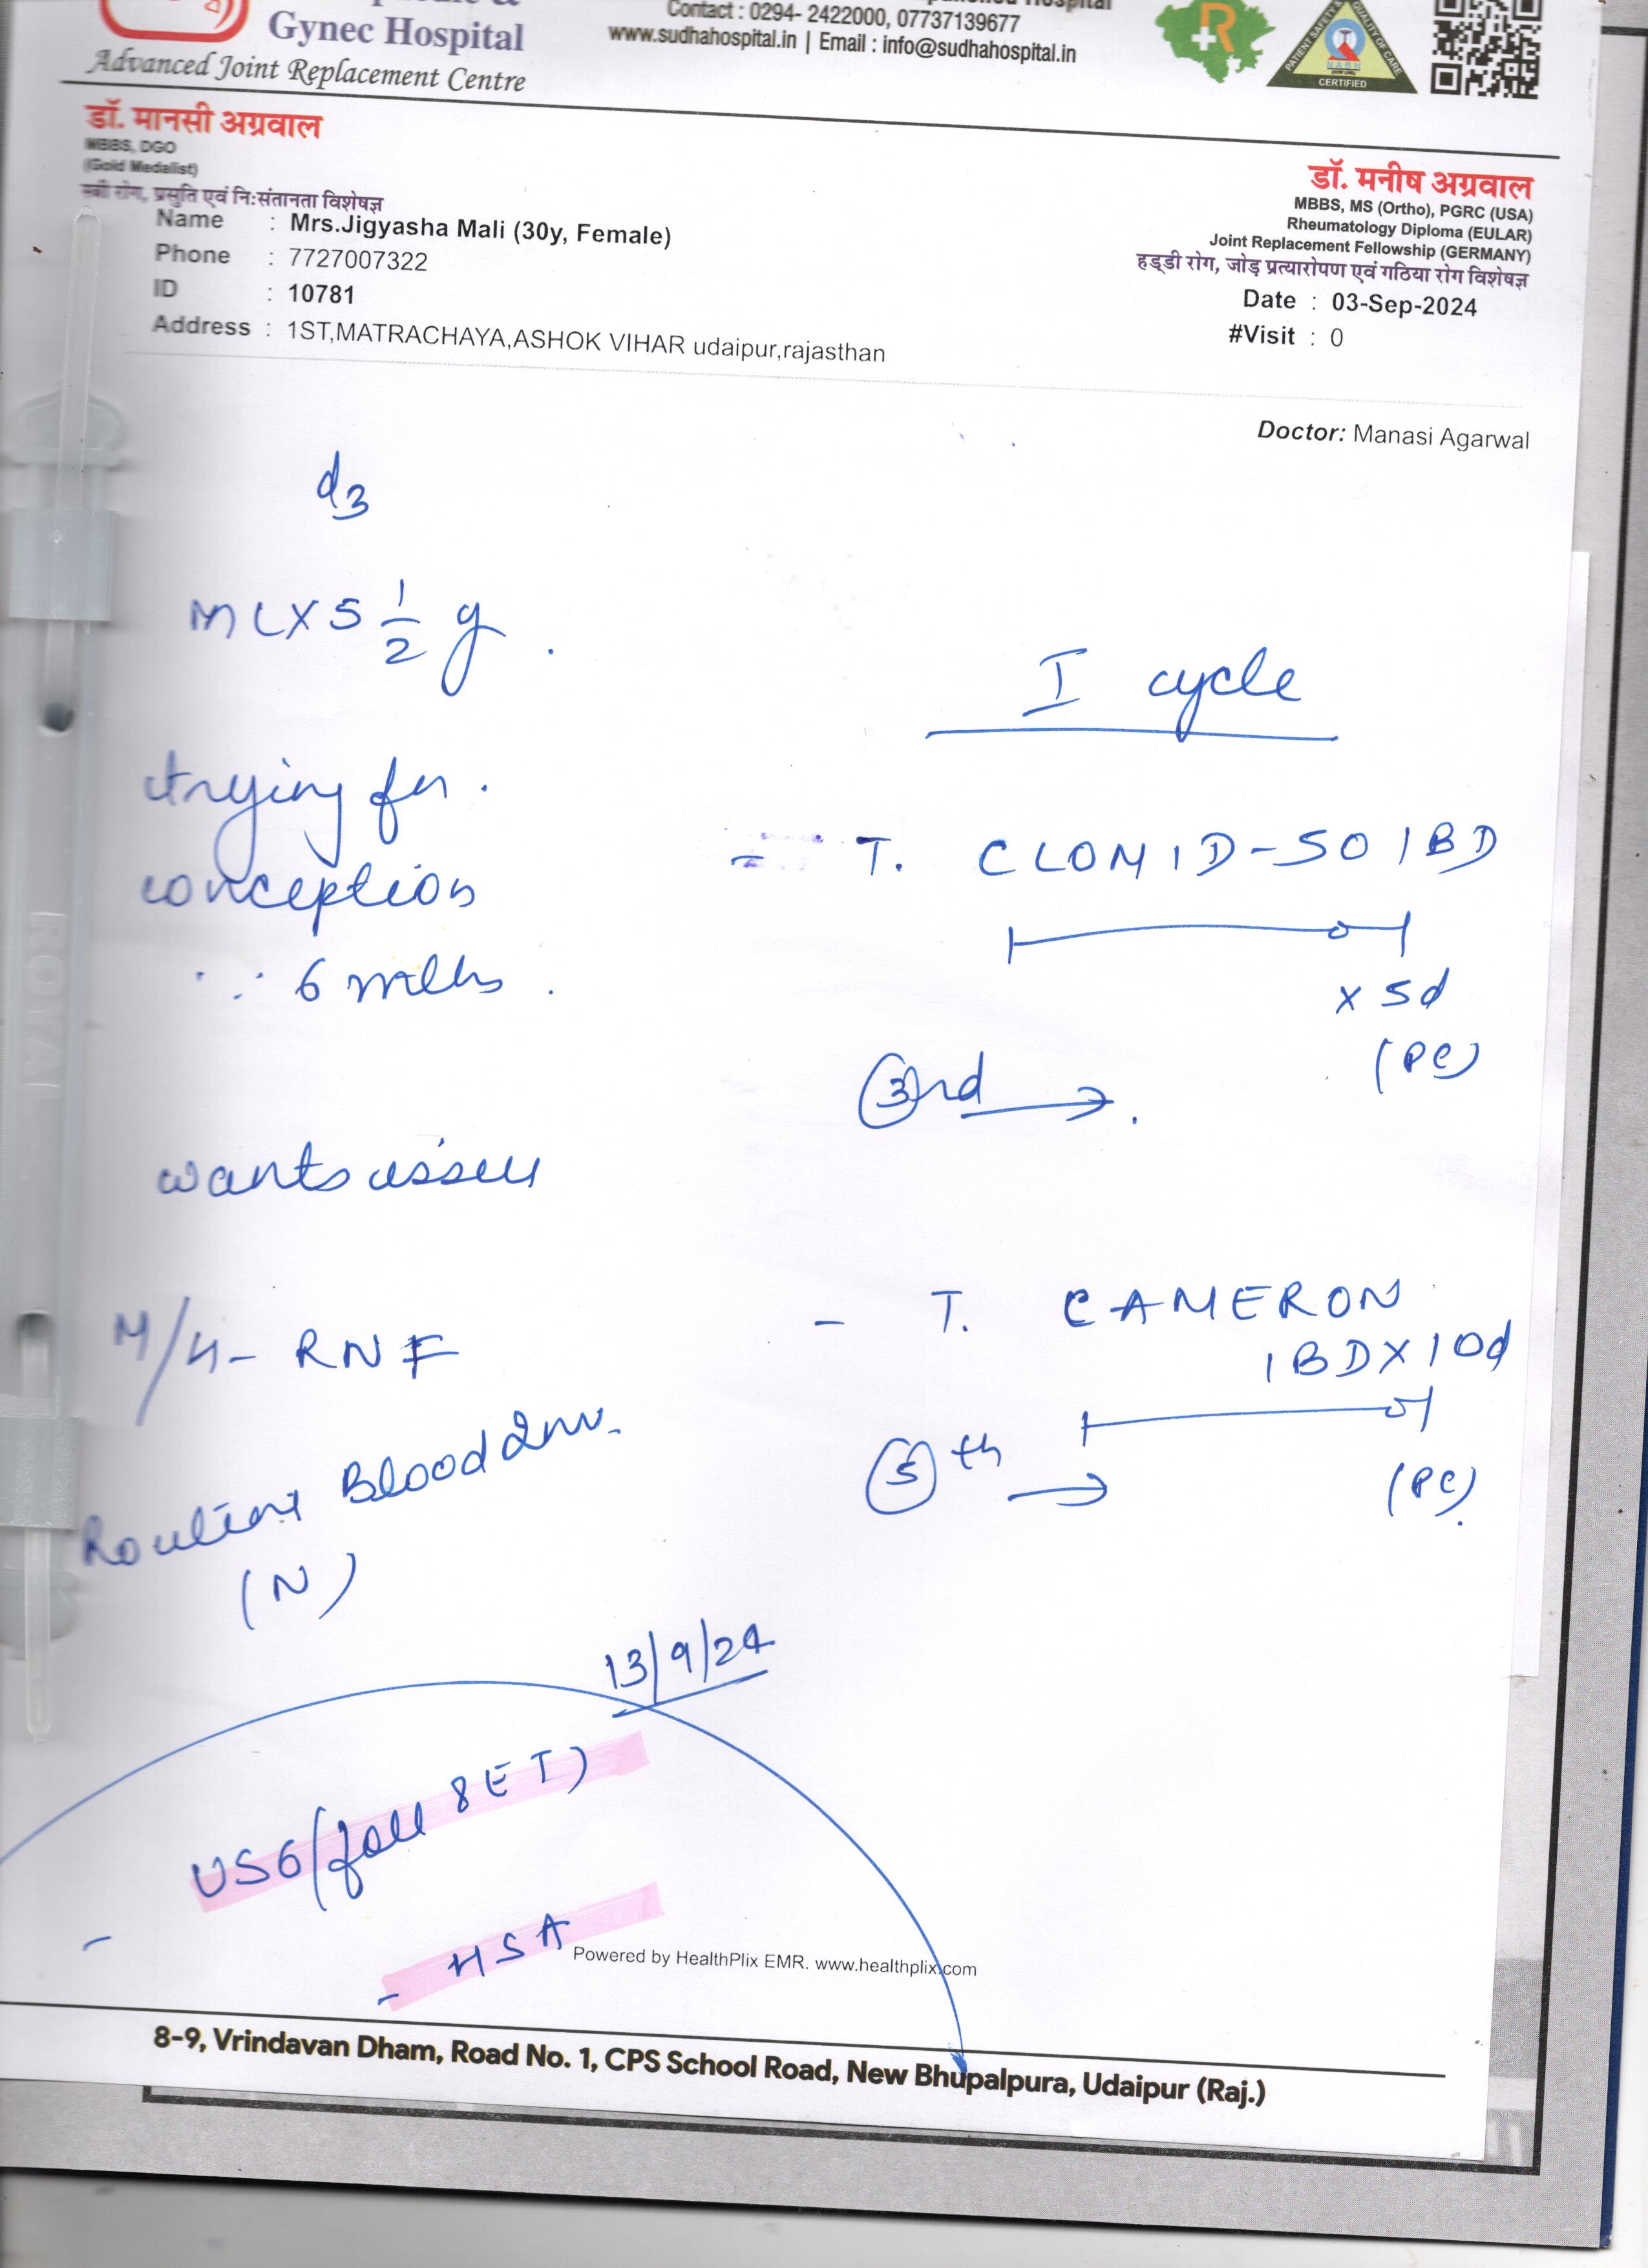 Gynec Hospital
Advanced Joint Replacement Centre
Contact : 0294- 2422000, 07737139677
www.sudhahospital.in | Email : info@sudhahospital.in
PATIENT SAFETY & QUALITY OF CARE
NABH
CERTIFIED
डॉ. मानसी अग्रवाल
MBBS, DGO
(Gold Medalist)
स्त्री रोग, प्रसुति एवं नि:संतानता विशेषज्ञ
डॉ. मनीष अग्रवाल
MBBS, MS (Ortho), PGRC (USA)
Rheumatology Diploma (EULAR)
Joint Replacement Fellowship (GERMANY)
हड्डी रोग, जोड़ प्रत्यारोपण एवं गठिया रोग विशेषज्ञ
Name : Mrs.Jigyasha Mali (30y, Female)
Phone : 7727007322
ID : 10781
Address : 1ST,MATRACHAYA,ASHOK VIHAR udaipur,rajasthan
Date : 03-Sep-2024
#Visit : 0
Doctor: Manasi Agarwal
d3
MLX5 1/2 y.
trying for.
conception
∵ 6 mths.
wants issue
M/H- RNF
Routine Blood Inv.
(N)
I cycle
- T. CLOMID-50 1BD
x 5d
(PC)
3rd →.
- T. CAMERON
1BDX10d
5th →
(PC).
13/9/24
- USG (foll & ET)
- HSA
Powered by HealthPlix EMR. www.healthplix.com
8-9, Vrindavan Dham, Road No. 1, CPS School Road, New Bhupalpura, Udaipur (Raj.)
ROYAL